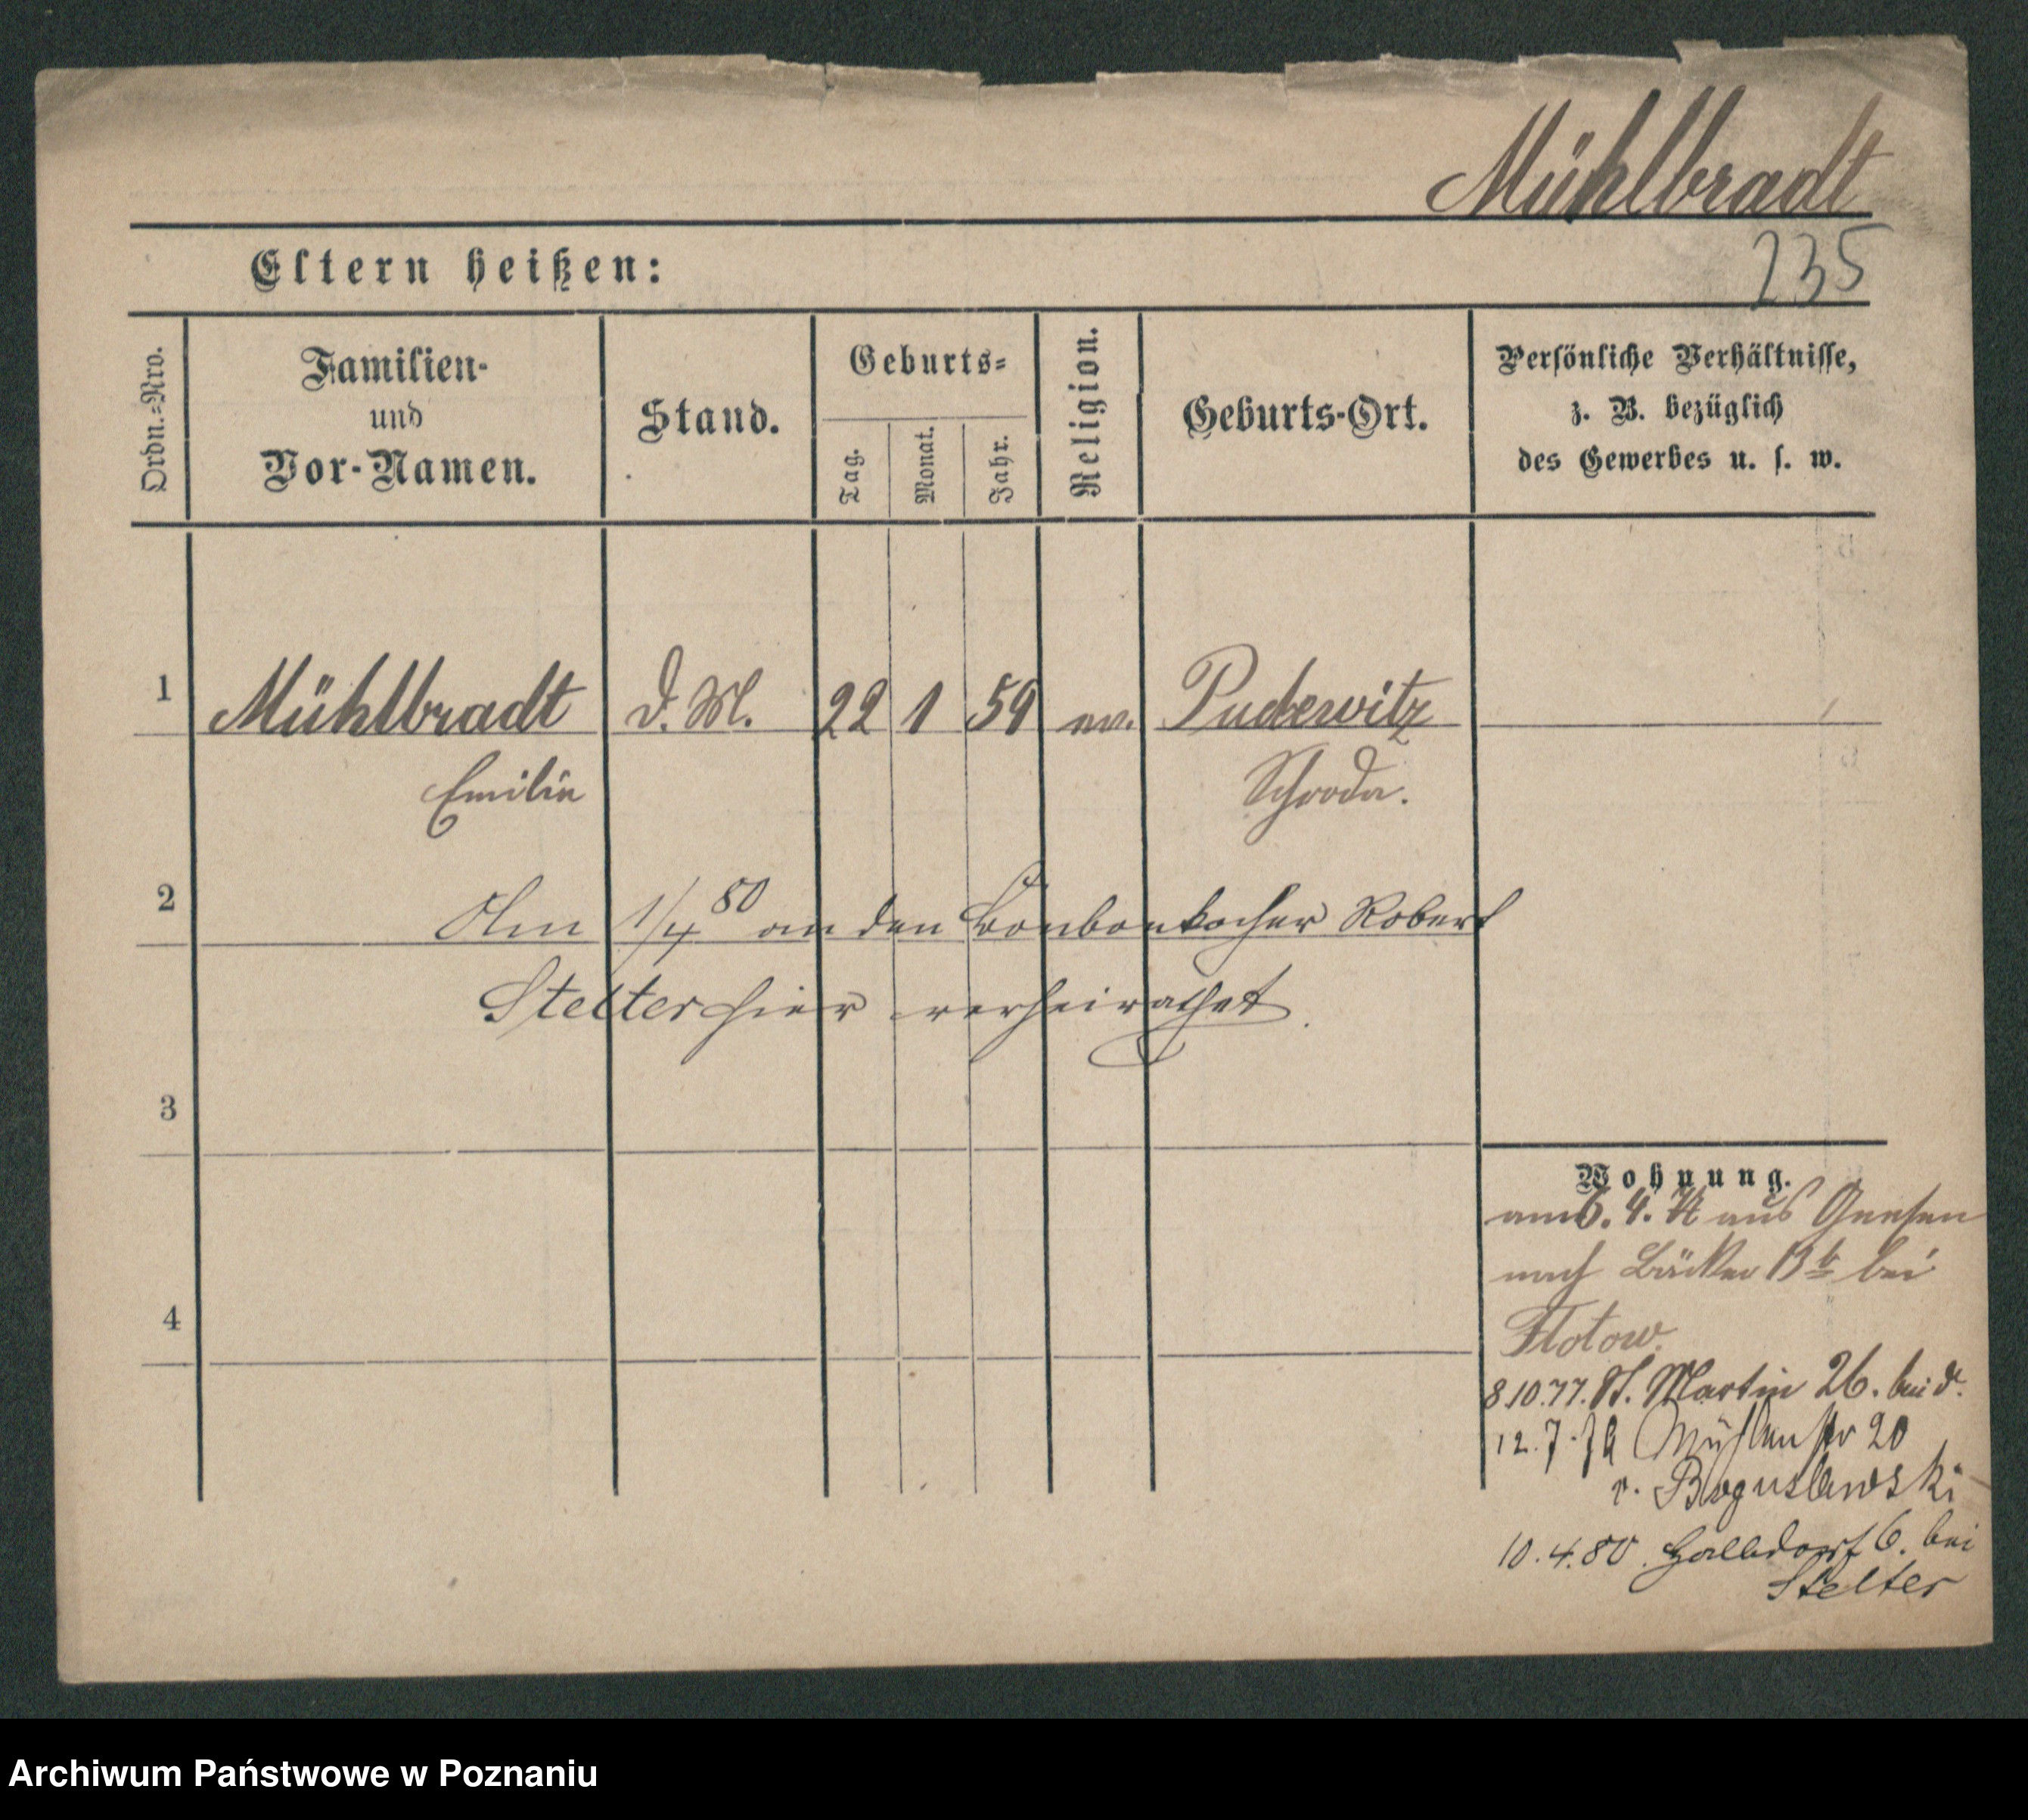 Mühlbradt
235
Eltern heißen:
Ordn.=Nro.
Familien- und Vor-Namen.
Stand.
Geburts=
Tag.
Monat.
Jahr.
Religion.
Geburts-Ort.
Persönliche Verhältnisse,
z. B. bezüglich
des Gewerbes u. s. w.
1 Mühlbradt D. M. 22 1 59 ev. Pudewitz
Emilie Schroda.
2 Am 1/4 80 an den Bonbonkocher Robert
Stelter hier verheirathet.
3
4
Wohnung.
am 6. 4. aus Gnesen
nach bei
Flotow.
8.10.77. St. Martin 26. bei d.
12. 7. Mühlenstr 20
v. Boguslawski
10. 4. 80. Halbdorf 6. bei
Stelter
Archiwum Państwowe w Poznaniu